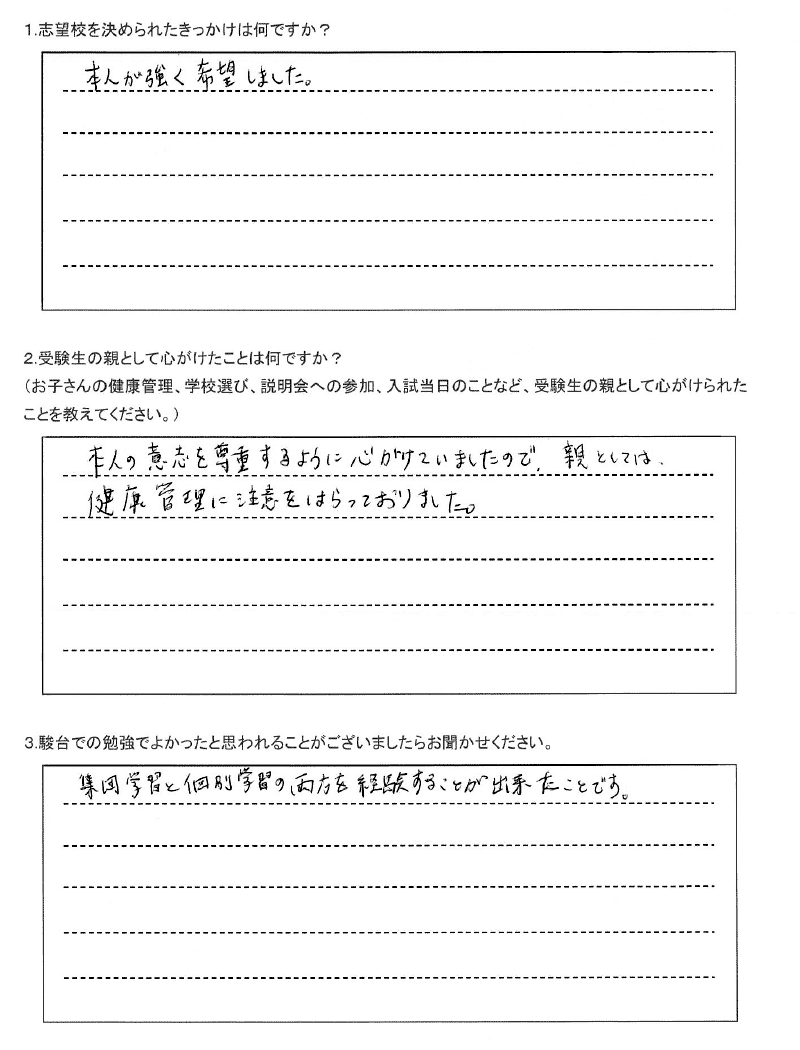 1.志望校を決められたきっかけは何ですか？
本人が強く希望しました。
2.受験生の親として心がけたことは何ですか？
（お子さんの健康管理、学校選び、説明会への参加、入試当日のことなど、受験生の親として心がけられた
ことを教えてください。）
本人の意志を尊重するように心がけていましたので、親としては、
健康管理に注意をはらっておりました。
3.駿台での勉強でよかったと思われることがございましたらお聞かせください。
集団学習と個別学習の両方を経験することが出来たことです。